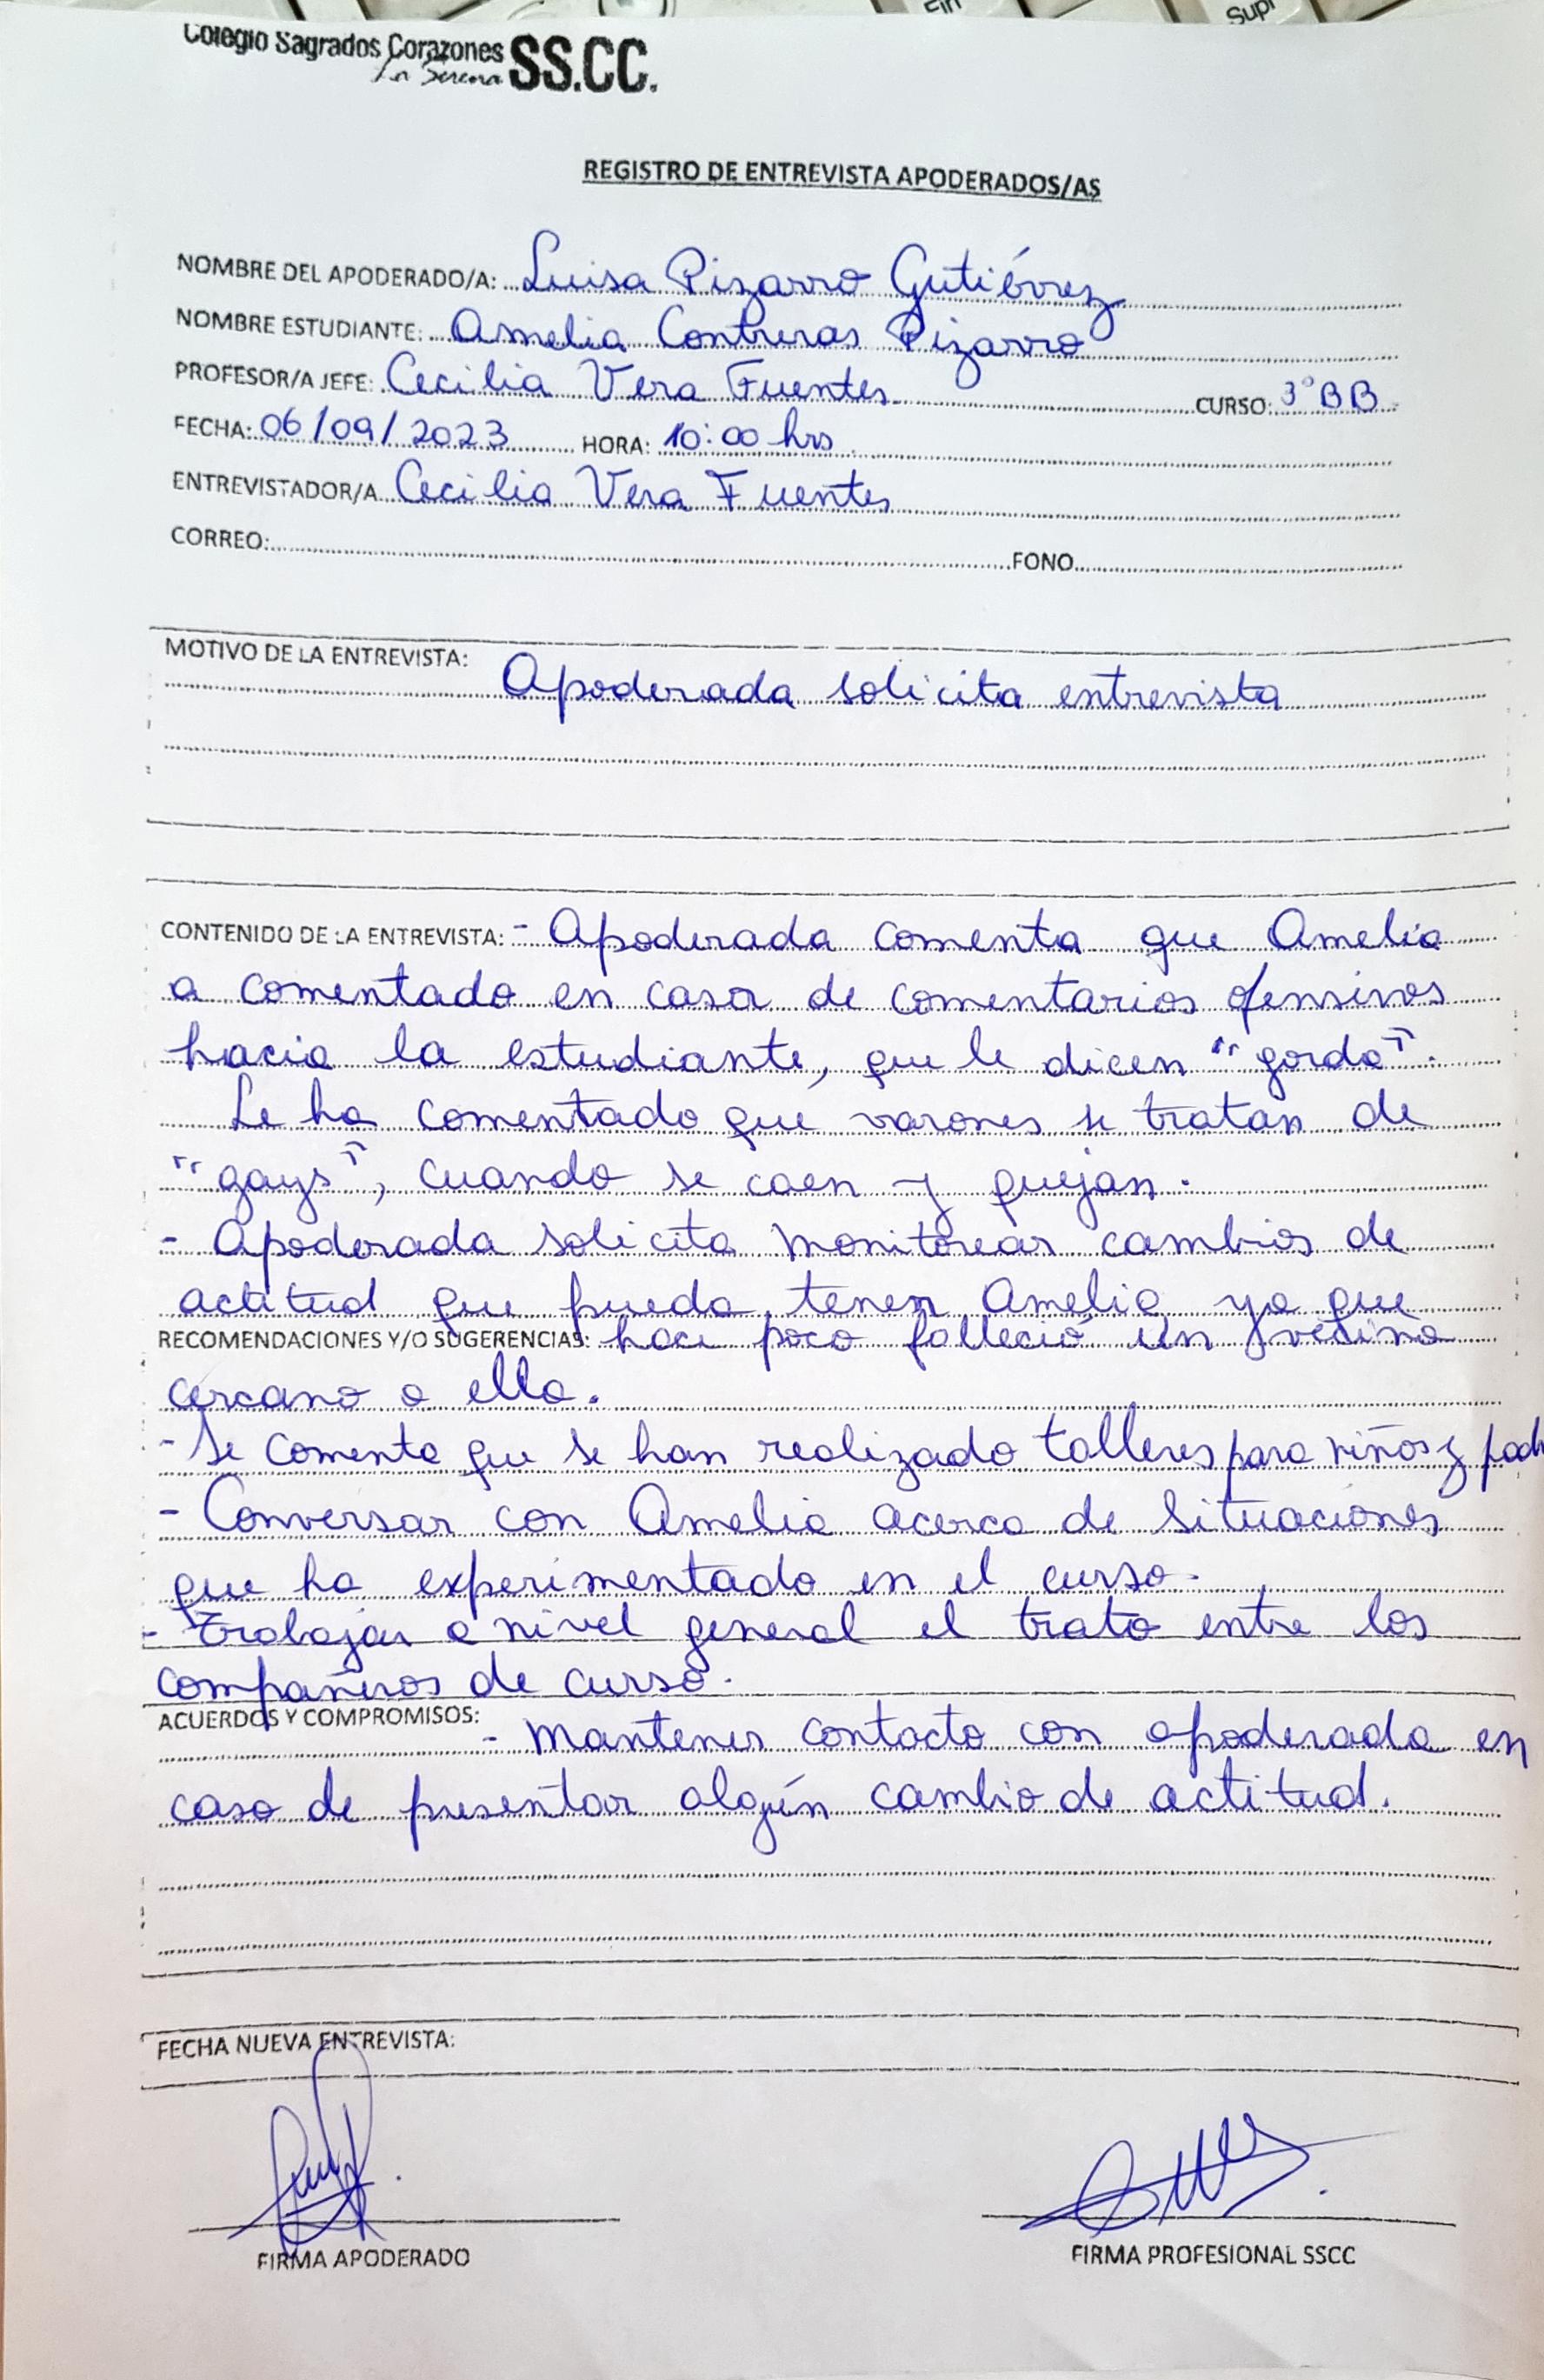 Fin
Supr
Colegio Sagrados Corazones SS.CC.
La Serena
REGISTRO DE ENTREVISTA APODERADOS/AS
NOMBRE DEL APODERADO/A: Luisa Pizarro Gutiérrez
NOMBRE ESTUDIANTE: Amelia Contreras Pizarro
PROFESOR/A JEFE: Cecilia Vera Fuentes CURSO: 3°BB
FECHA: 06/09/2023 HORA: 10:00 hrs
ENTREVISTADOR/A Cecilia Vera Fuentes
CORREO: FONO
MOTIVO DE LA ENTREVISTA: Apoderada solicita entrevista
CONTENIDO DE LA ENTREVISTA: - Apoderada comenta que Amelia
a comentado en casa de comentarios ofensivos
hacia la estudiante, que le dicen "gorda".
Le ha comentado que varones se tratan de
"gays", cuando se caen y quejan.
- Apoderada solicita monitorear cambios de
actitud que pueda tener Amelia ya que
RECOMENDACIONES Y/O SUGERENCIAS: hace poco falleció un vecino
cercano a ella.
- Se comenta que se han realizado talleres para niños y pad
- Conversar con Amelia acerca de situaciones
que ha experimentado en el curso.
- Trabajar a nivel general el trato entre los
compañeros de curso.
ACUERDOS Y COMPROMISOS: - Mantener contacto con apoderada en
caso de presentar algún cambio de actitud.
FECHA NUEVA ENTREVISTA:
FIRMA APODERADO FIRMA PROFESIONAL SSCC